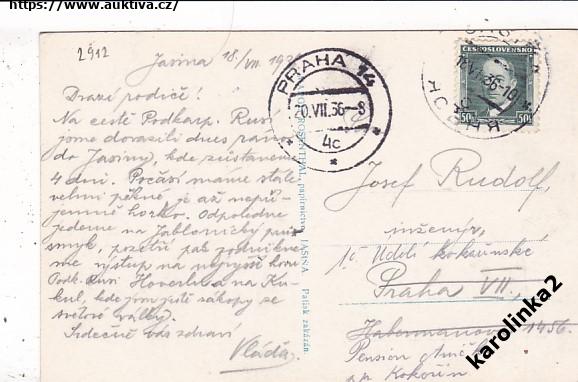 https://www.auktiva.cz/
2912
Jasina 18/VII 193
Drazí rodiče!
Na cestě Podkarp. Rusí
jsme dorazili dnes ráno
do Jasiny, kde zůstaneme
4 dni. Počasí máme stále
velmi pěkné, je až nepří-
jemné horko. Odpoledne
jedeme na Jablonický prů-
smyk, pozítří pak podnikne-
me výstup na nejvyšší horu
Podk. Rusi Hoverlu a na Ku-
kul, kde jsou ještě zákopy ze
světové války.
Srdečně Vás zdraví
Vláďa.
ROSENTHAL, papírnictví, JASIŇA Tisk zakázán.
PRAHA 14
20.VII.36-8
4c
ČESKOSLOVENSKO
50 50
VII 36-19
Josef Rudolf,
inženýr,
Údolí kokořínské
Praha VII.,
Habermanova 1456.
Pension
p.p. Kokořín
karolinka2